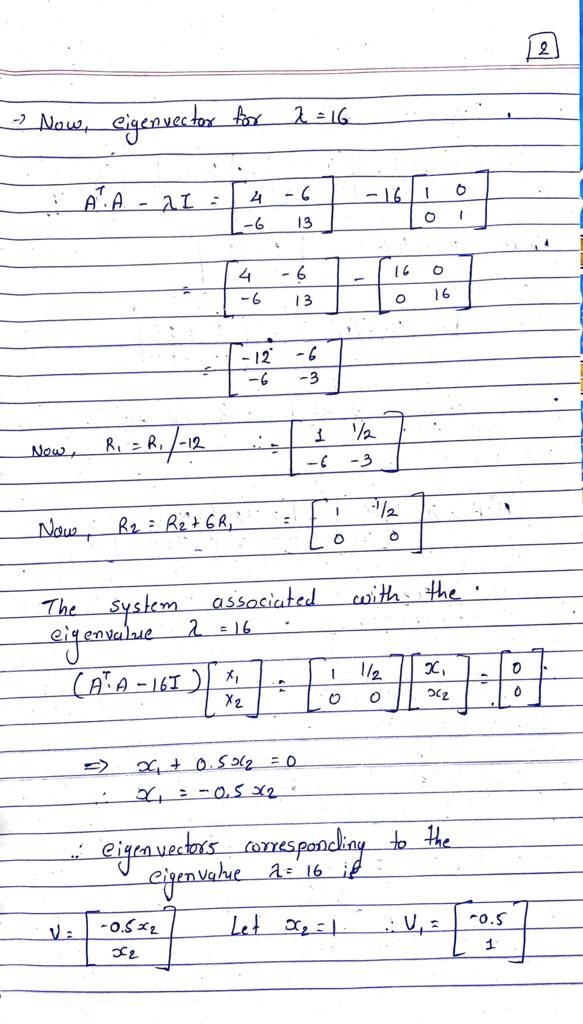 2
→ Now, eigenvector for λ = 16
∴ Aᵀ.A - λI = [4 -6; -6 13] - 16 [1 0; 0 1]
= [4 -6; -6 13] - [16 0; 0 16]
= [-12 -6; -6 -3]
Now, R₁ = R₁/-12 ∴ = [1 1/2; -6 -3]
Now, R₂ = R₂ + 6R₁ = [1 1/2; 0 0]
The system associated with the
eigenvalue λ = 16
(Aᵀ.A - 16I) [x₁; x₂] = [1 1/2; 0 0] [x₁; x₂] = [0; 0]
⇒ x₁ + 0.5x₂ = 0
∴ x₁ = -0.5 x₂
∴ eigenvectors corresponding to the
eigenvalue λ = 16 is
V = [-0.5x₂; x₂] Let x₂ = 1 ∴ V₁ = [-0.5; 1]